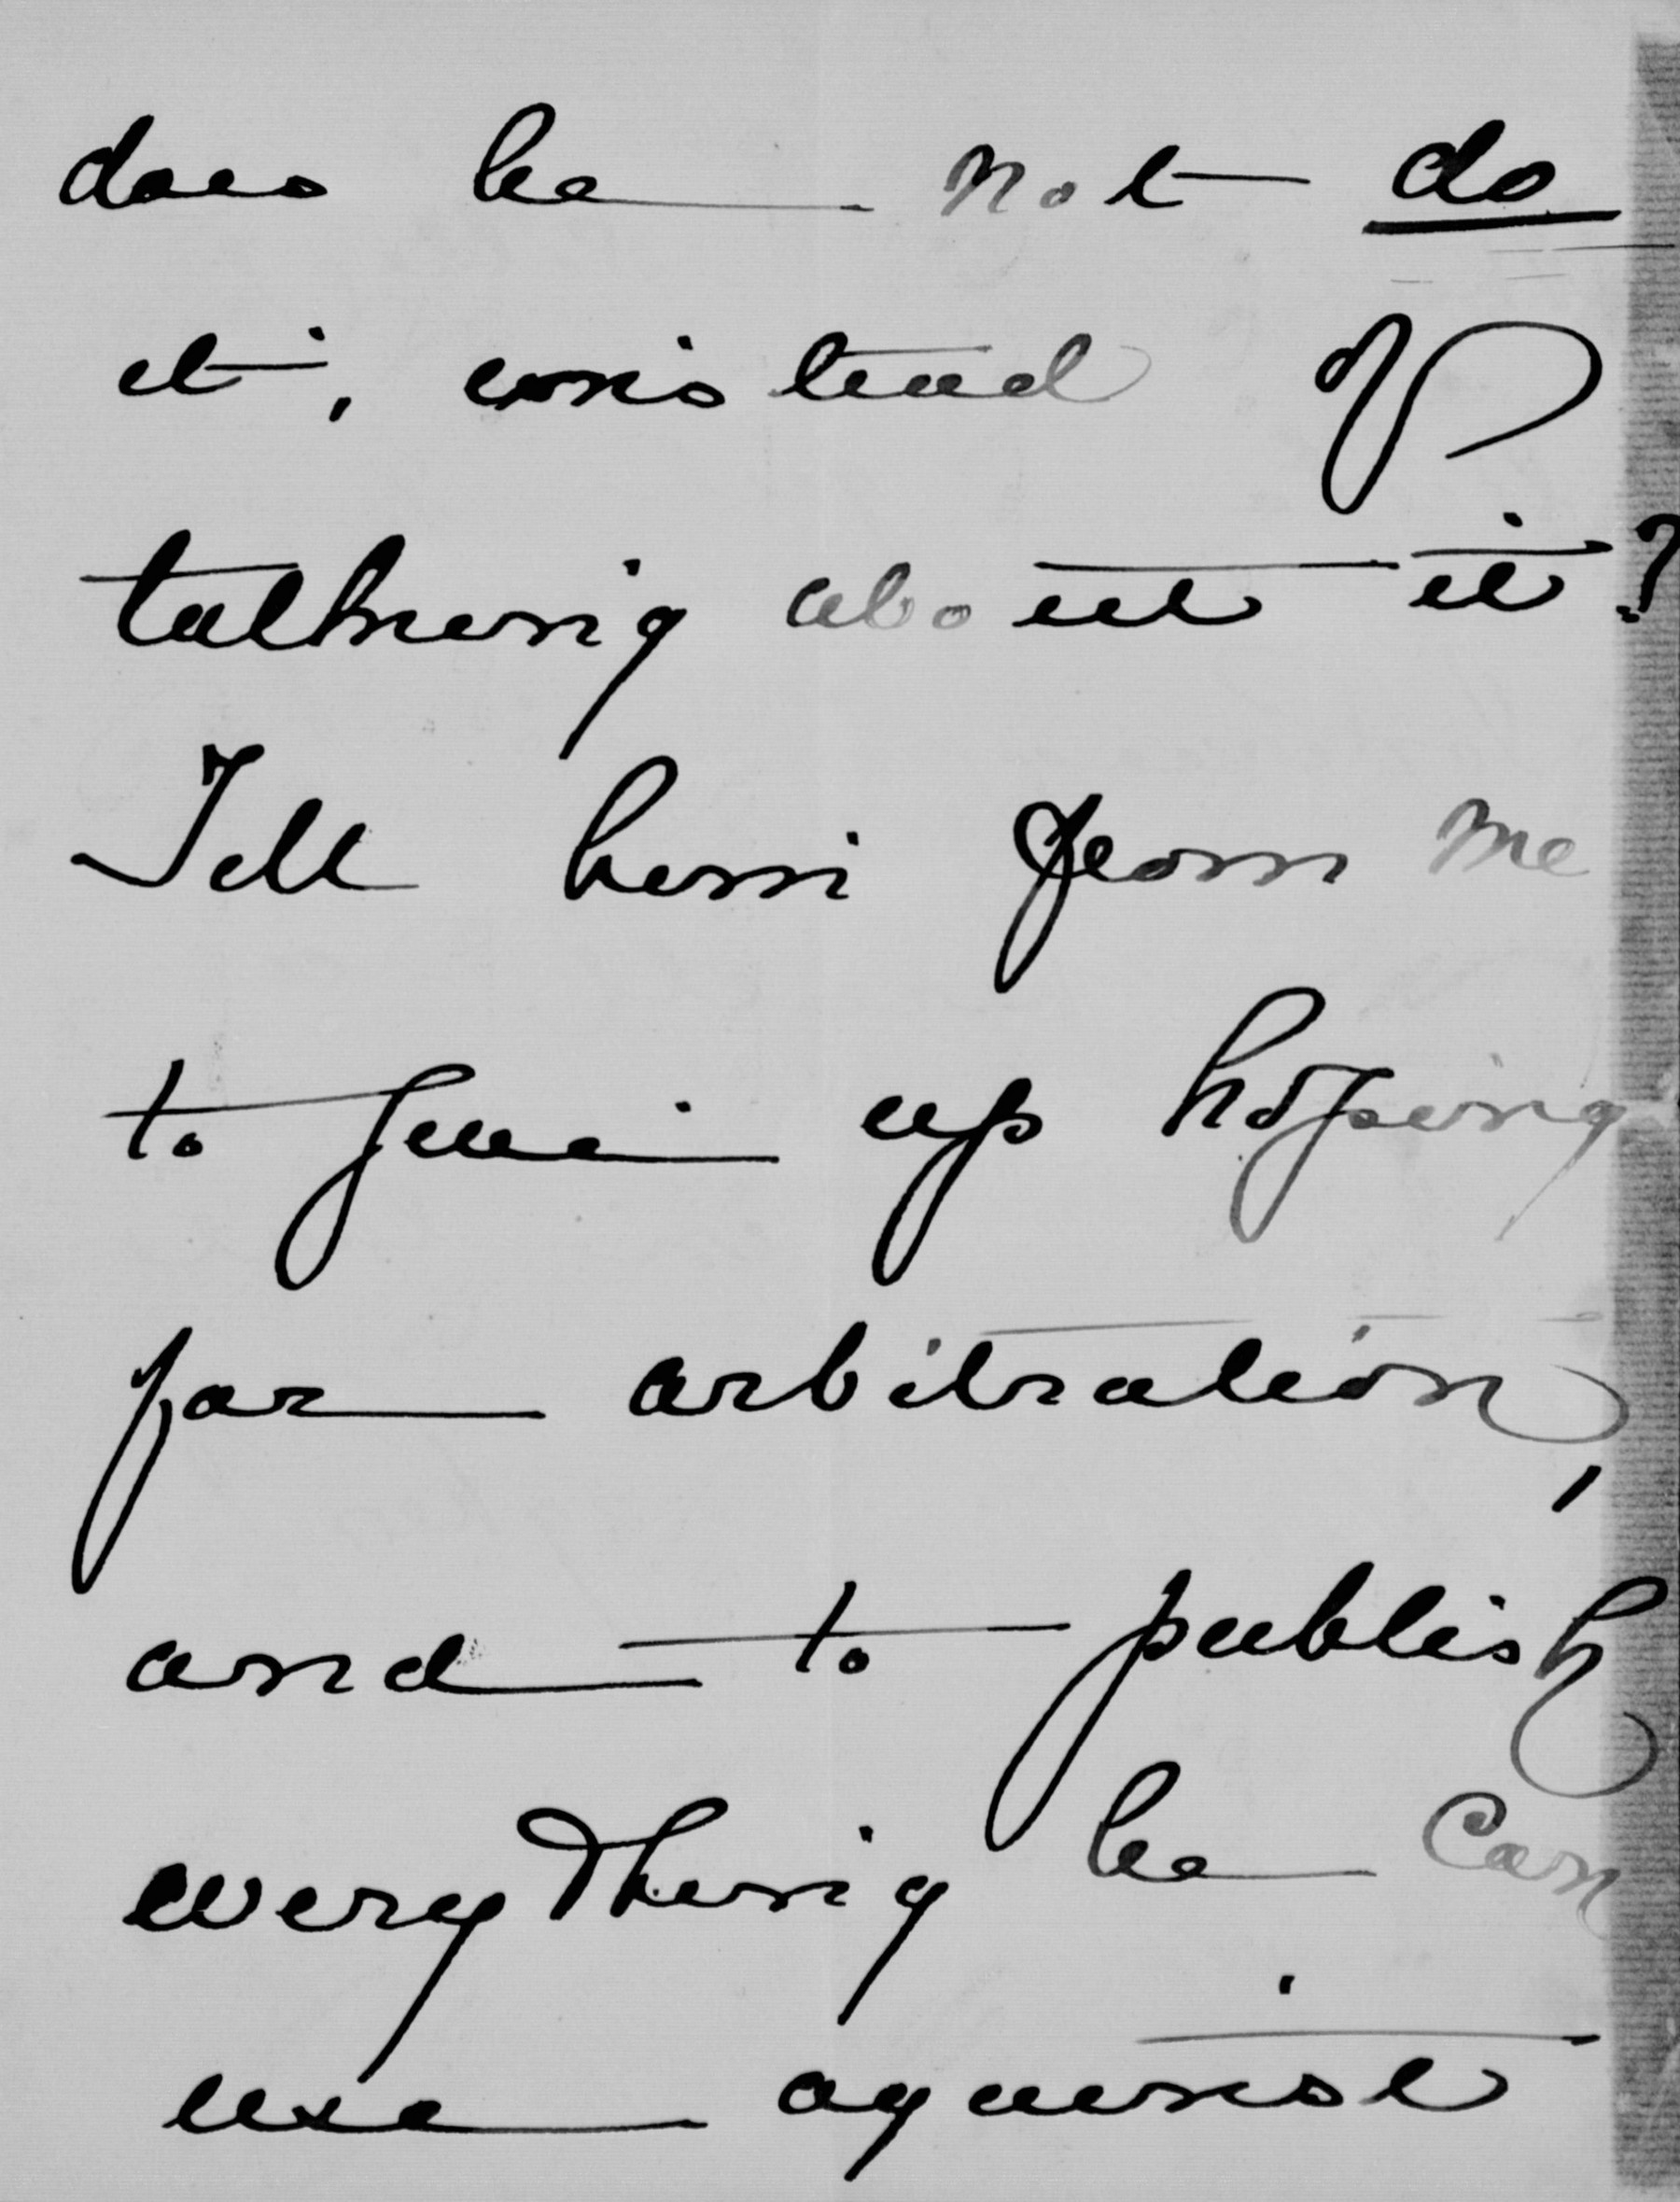 does he not do
it, instead of
talking about it?
Tell him from me
to give up hoping
for arbitration,
and to publish
everything he can
use against